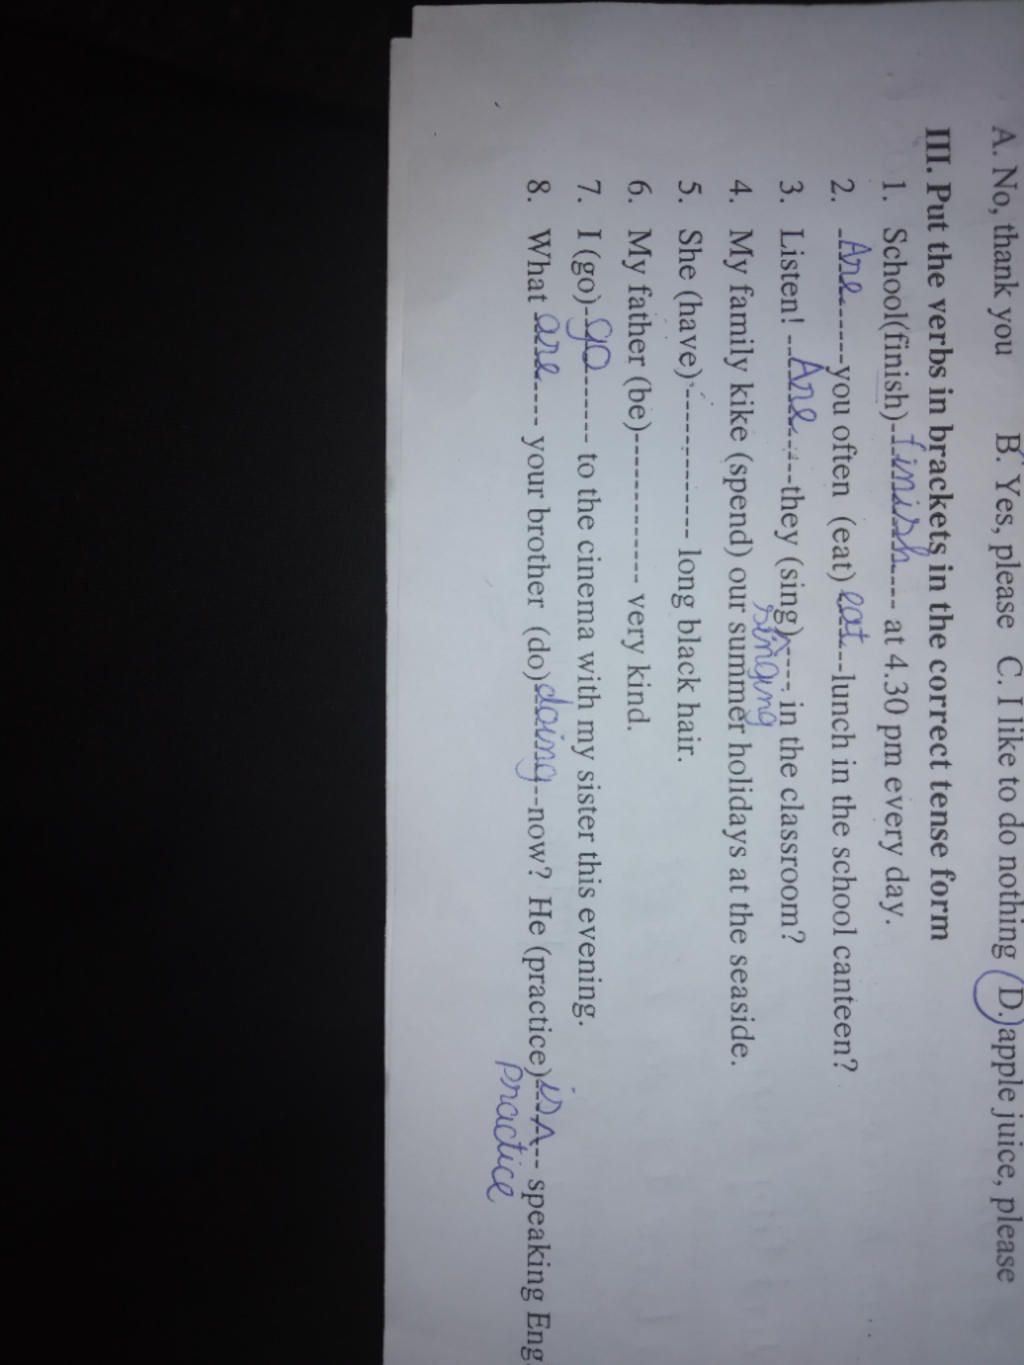 A. No, thank you B. Yes, please C. I like to do nothing D. apple juice, please
III. Put the verbs in brackets in the correct tense form
1. School(finish)--finish---- at 4.30 pm every day.
2. -Are-------you often (eat) eat---lunch in the school canteen?
3. Listen! --Are-----they (sing)----- in the classroom?
singing
4. My family kike (spend) our summer holidays at the seaside.
5. She (have)------------- long black hair.
6. My father (be)------------ very kind.
7. I (go)-go------ to the cinema with my sister this evening.
8. What are---- your brother (do) doing--now? He (practice)--is--- speaking Eng
practice